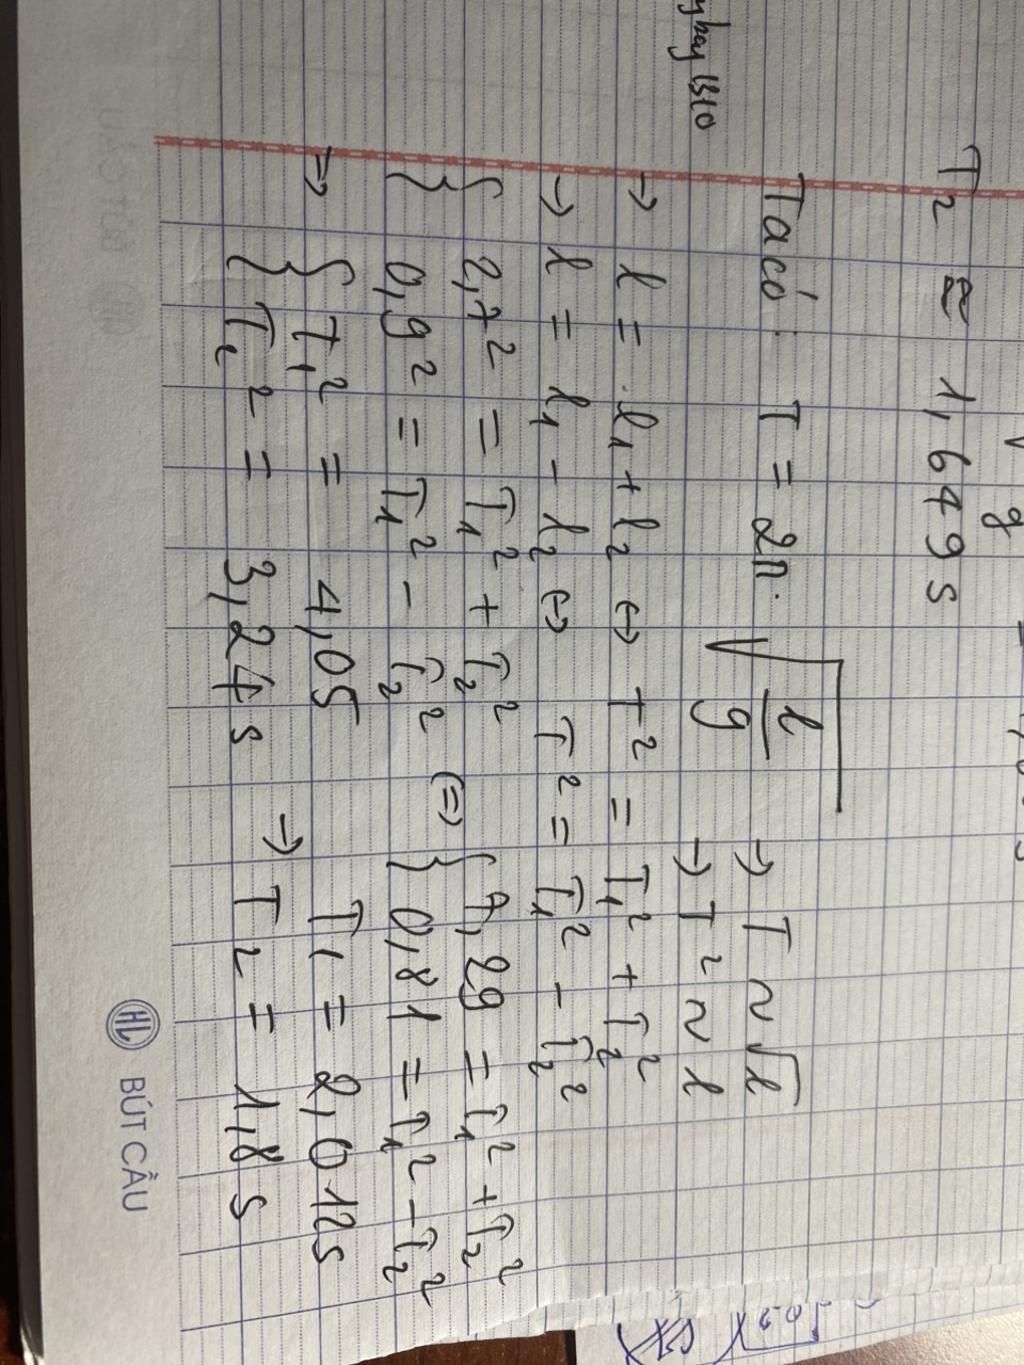 T₂ ≈ 1,649 s
Ta có: T = 2π · √(l/g) → T ~ √l
→ T² ~ l
→ l = l₁ + l₂ ↔ T² = T₁² + T₂²
→ l = l₁ - l₂ ↔ T² = T₁² - T₂²
{ 2,7² = T₁² + T₂² (=) { 7,29 = T₁² + T₂²
0,9² = T₁² - T₂² 0,81 = T₁² - T₂²
=> { T₁² = 4,05 T₁ = 2,012s
T₂² = 3,24 s → T₂ = 1,8 s
HL BÚT CẦU